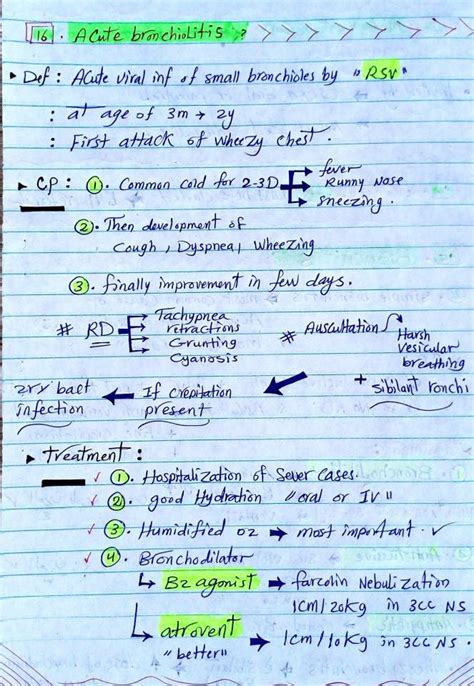 16. Acute bronchiolitis ?
Def : Acute viral inf of small bronchioles by "RSV"
: at age of 3m → 2y
: First attack of wheezy chest.
CP : ①. Common cold for 2-3D → fever
→ Runny Nose
→ sneezing.
②. Then development of
Cough, Dyspnea, wheezing
③. finally improvement in few days.
# RD → Tachypnea
→ retractions
→ Grunting
→ Cyanosis
# Auscultation → Harsh
vesicular
breathing
+ sibilant ronchi
2ry bact infection ← If crepitation present ←
Treatment :
①. Hospitalization of Sever Cases.
②. good Hydration "oral or IV"
③. Humidified O2 → most important ✓
④. Bronchodilator
→ B2 agonist → farcolin Nebulization
1cm/20kg in 3cc NS
→ atrovent → 1cm/10kg in 3cc NS.
"better"